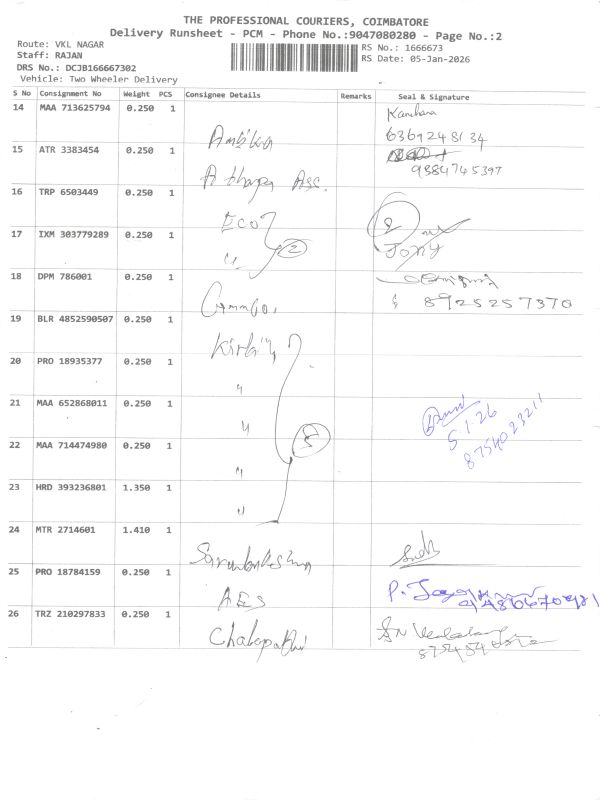 THE PROFESSIONAL COURIERS, COIMBATORE
Delivery Runsheet - PCM - Phone No.:9047080280 - Page No.:2
Route: VKL NAGAR
RS No.: 1666673
Staff: RAJAN
RS Date: 05-Jan-2026
DRS No.: DCJB166667302
Vehicle: Two Wheeler Delivery
S No Consignment No Weight PCS Consignee Details Remarks Seal & Signature
14 MAA 713625794 0.250 1 Ambika Kanchana
6369248134
15 ATR 3383454 0.250 1 Ass.
9384745397
16 TRP 6503449 0.250 1 Eco 2
17 IXM 303779289 0.250 1 " Jony
18 DPM 786001 0.250 1
8925257370
19 BLR 4852590507 0.250 1
20 PRO 18935377 0.250 1 "
21 MAA 652868011 0.250 1 "
5.1.26
8754023211
22 MAA 714474980 0.250 1 " 5
23 HRD 393236801 1.350 1 "
24 MTR 2714601 1.410 1
25 PRO 18784159 0.250 1 AES P.
26 TRZ 210297833 0.250 1